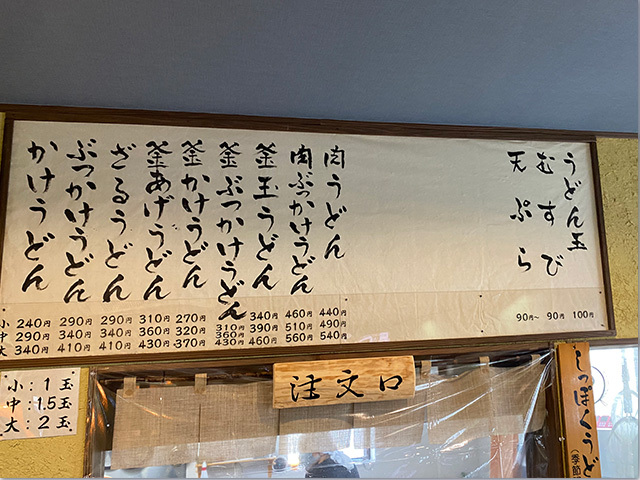 うどん玉
むすび
天ぷら
肉うどん
肉ぶっかけうどん
釜玉うどん
釜ぶっかけうどん
釜かけうどん
釜あげうどん
ざるうどん
ぶっかけうどん
かけうどん
小 240円 290円 290円 310円 270円 310円 340円 460円 440円
中 290円 340円 340円 360円 320円 360円 390円 510円 490円
大 340円 410円 410円 430円 370円 430円 460円 560円 540円
90円~ 90円 100円
注文口
小：1玉
中：1.5玉
大：2玉
しっぽくうど
(季節